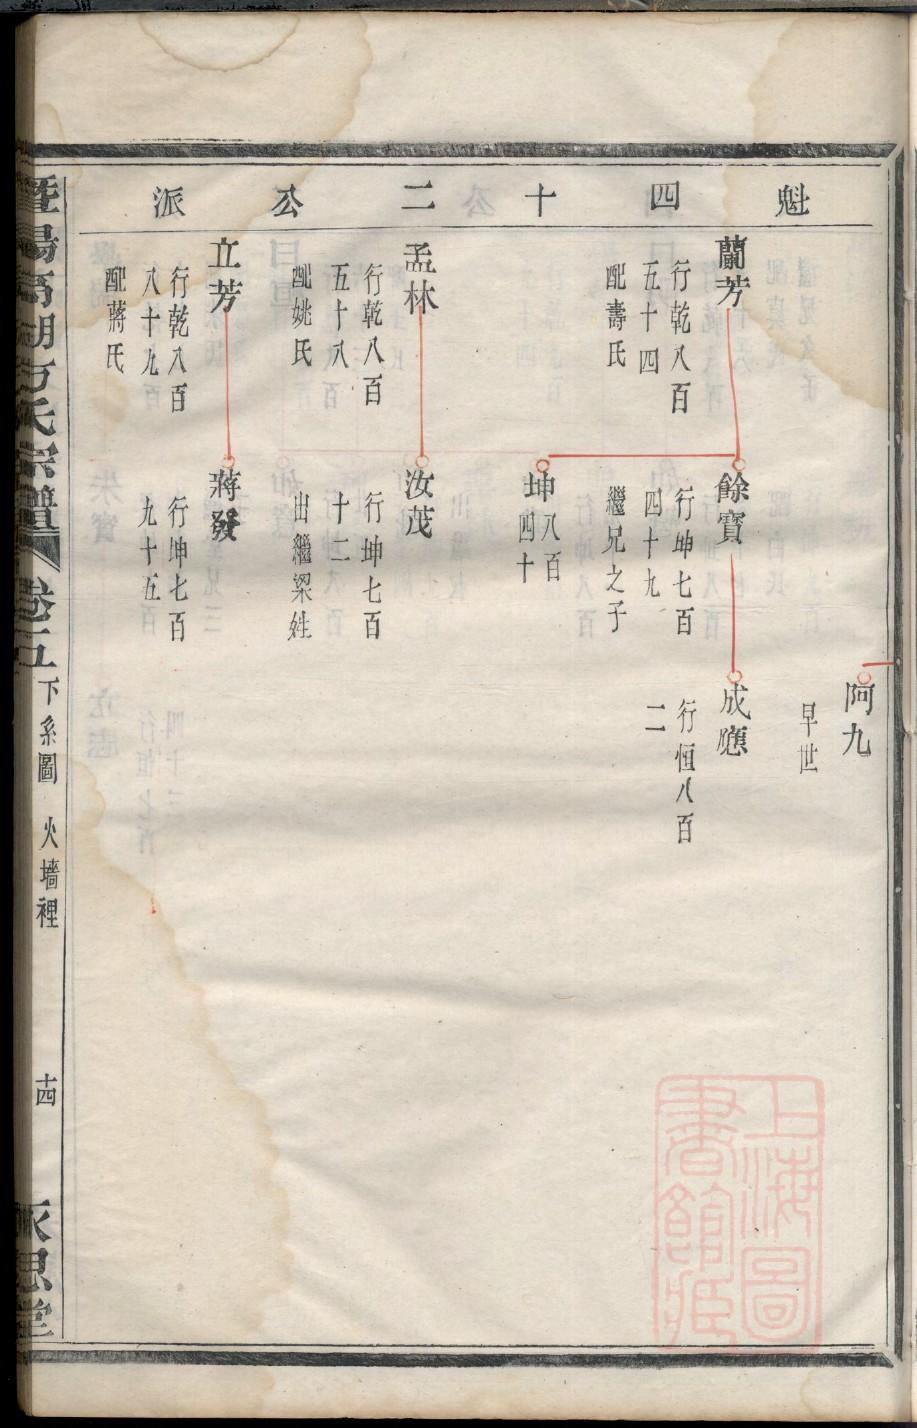 魁四十二公派
阿九
早世
蘭芳
行乾八百
五十四
配壽氏
餘寶
行坤七百
四十九
繼兄之子
成應
行恒八百
二
坤八百
四十
孟林
行乾八百
五十八
配姚氏
汝茂
行坤七百
十二
出繼梁姓
立芳
行乾八百
八十九
配蔣氏
蔣發
行坤七百
九十五
方氏宗譜
卷二五
下系圖 火墻裡
十四
永思堂
上海圖
書館藏